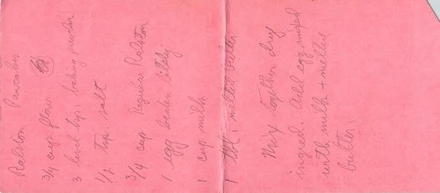 Ralston Pancakes
3/4 cup flour
3 level tsps. baking powder
1/2 tsp salt
3/4 cup Regular Ralston
1 egg beaten lightly
1 cup milk
1 tbl. melted butter
Mix together dry
ingred. Add egg mixed
with milk + melted
butter.